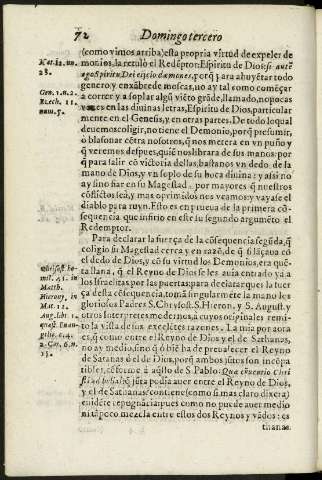 72 Domingo tercero
(como vimos arriba) esta propria virtud de expeler demonios,
Mat. 12. nu. 28.
la retulò el Redẽptor: Espiritu de Dios: si autẽ
ego Spiritu Dei eijcio dæmones, porq̃ para ahuyẽtar todo
genero y enxãbre de moscas, no ay tal como começar
Gen. 1. n. 2.
a correr y a soplar algũ viẽto grãde, llamado, no pocas
Ezech. 11. num. 5.
vezes en las divinas letras, Espiritu de Dios, particularmente
en el Genesis, y en otras partes. De todo lo qual
devemos coligir, no tiene el Demonio, porq̃ presumir, ni
blasonar cõtra nosotros, q̃ nos meterà en vn puño y
q̃ veremos despues, quiẽ nos librarà de sus manos: porq̃
para salir cõ victoria dellas, bastanos vn dedo de la
mano de Dios, y vn soplo de su boca divina: y assi no
ay sino fiar en su Magestad, por mayores q̃ nuestros
cõflictos seã, y mas oprimidos nos veamos: y vayase el
diablo para ruyn. Esto es en prueva de la primera cõsequencia
que infirio en este su segundo argumẽto el
Redemptor.
Para declarar la fuerça de la cõsequencia segũda, q̃
coligio su Magestad cerca y en razõ, de q̃ si lãçava cõ
el dedo de Dios, y cõ su virtud los Demonios, era
llana, q̃ el Reyno de Dios se les avia entrado ya a
los Israelitas por las puertas: para declarar pues la fuerça
desta cõsequencia, tomã singularmẽte la mano los
gloriosos Padres S. Chrysost. S. Hieron. y S. August. y
otros Interpretes modernos, a cuyos originales remito
la vista de sus excelẽtes razones. La mia por aora
es, q̃ como entre el Reyno de Dios y el de Sathanas,
no ay medio, sino q̃ ò biẽ ha de prevalecer el Reyno
de Satanas ò el de Dios, porq̃ ambos jũtos son incõpatibles,
cõforme à aq̃llo de S. Pablo: Que cõventio
2. Cor. 6. n. 15.
q̃ jũta podia auer entre el Reyno de Dios,
y el de Satãnas: contiene (como si mas claro dixera)
evidẽte repugnãcia: pues como no puede auer medio
ni tãpoco mezcla entre estos dos Reynos y vãdos: es
thanas.